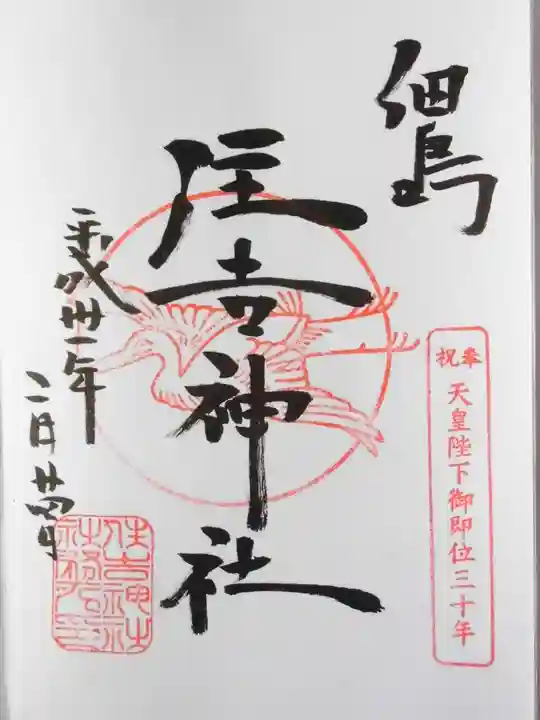 佃島
奉祝
天皇陛下御即位三十年
住吉神社
平成卅一年
二月廿四日
住吉神社